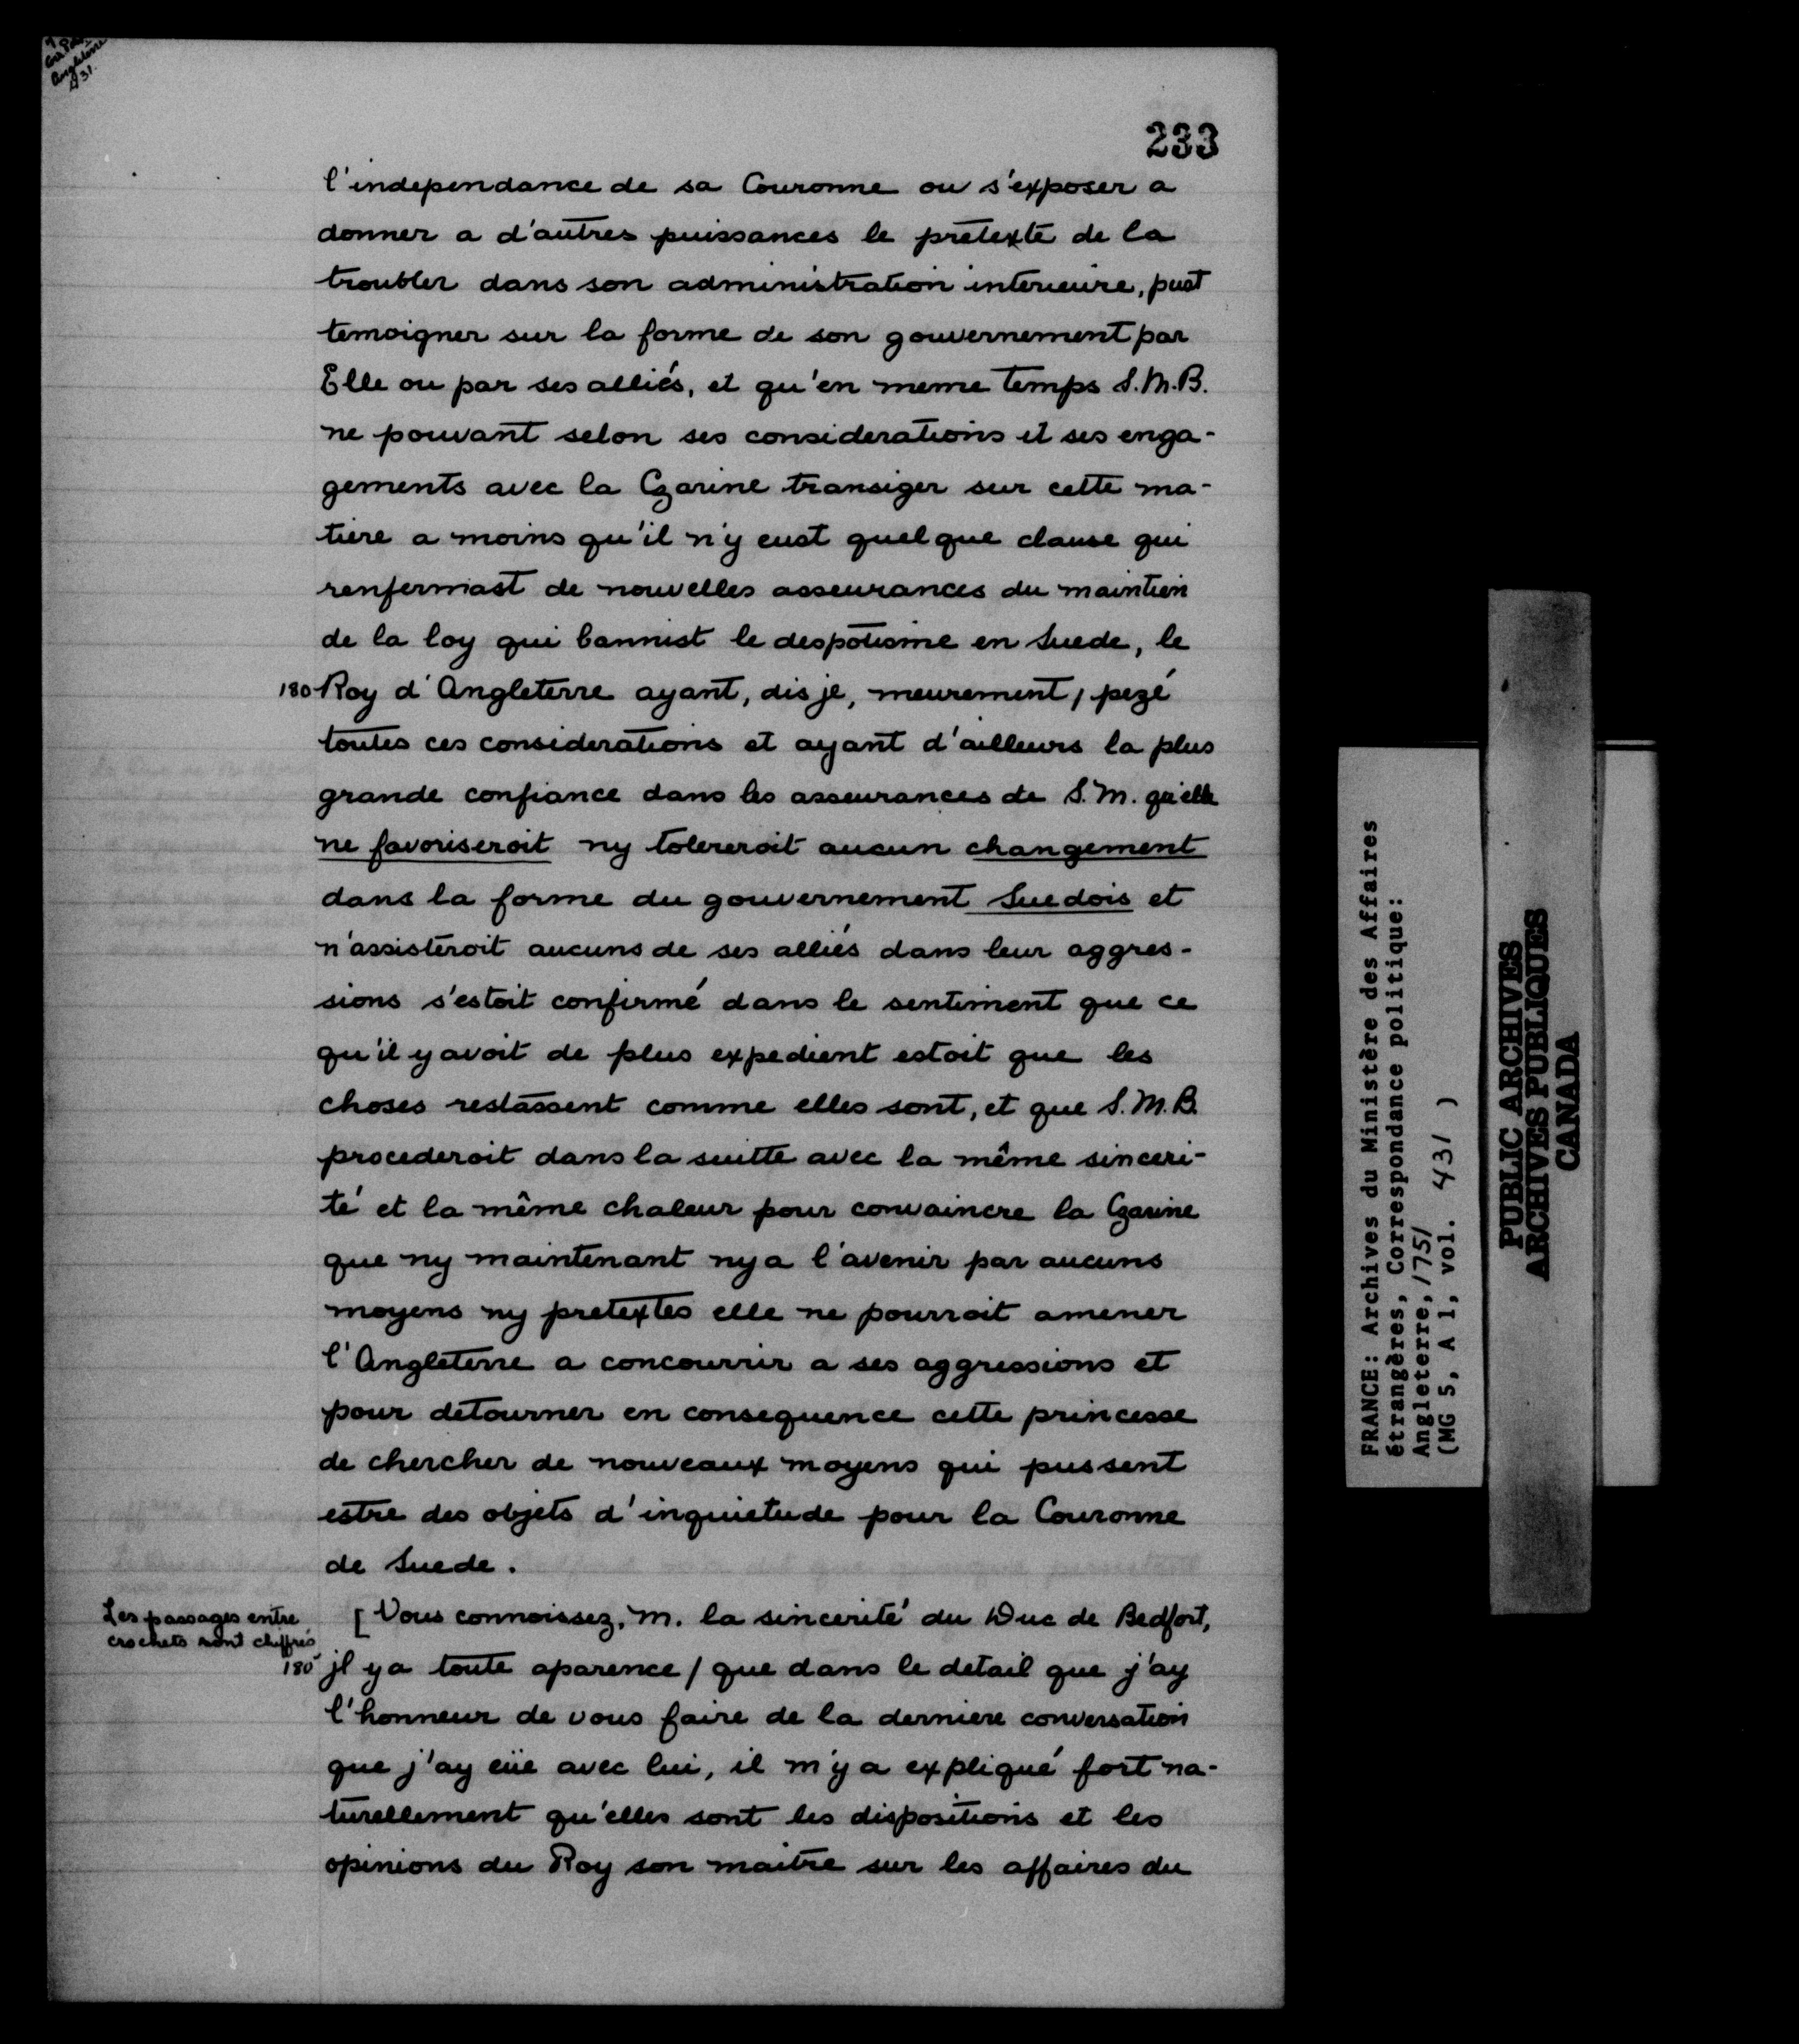 Angleterre
431.
233
l'independance de sa Couronne ou s'exposer a
donner a d'autres puissances le prétexte de la
troubler dans son administration interieure, pust
temoigner sur la forme de son gouvernement par
Elle ou par ses alliés, et qu'en meme temps S.M.B.
ne pouvant selon ses considerations et ses enga-
gements avec la Czarine transiger sur cette ma-
tiere a moins qu'il n'y eust quelque clause qui
renfermast de nouvelles asseurances du maintien
de la loy qui bannist le despotisme en Suede, le
180 Roy d'Angleterre ayant, dis je, meurement / pezé
toutes ces considerations et ayant d'ailleurs la plus
grande confiance dans les asseurances de S.M. qu'elle
ne favoriseroit ny tolereroit aucun changement
dans la forme du gouvernement Suedois et
n'assisteroit aucuns de ses alliés dans leur aggres-
sions s'estoit confirmé dans le sentiment que ce
qu'il y avoit de plus expedient estoit que les
choses restassent comme elles sont, et que S.M.B.
procederoit dans la suitte avec la même sinceri-
té et la même chaleur pour convaincre la Czarine
que ny maintenant ny a l'avenir par aucuns
moyens ny pretextes elle ne pourroit amener
l'Angleterre a concourrir a ses aggressions et
pour detourner en consequence cette princesse
de chercher de nouveaux moyens qui pussent
estre des objets d'inquietude pour la Couronne
de Suede.
Les passages entre
crochets sont chiffrés
[Vous connoissez, M. la sincerité du Duc de Bedfort,
180ᵛ jl y a toute aparence / que dans le detail que j'ay
l'honneur de vous faire de la derniere conversation
que j'ay eüe avec lui, il m'y a expliqué fort na-
turellement qu'elles sont les dispositions et les
opinions du Roy son maitre sur les affaires du
FRANCE: Archives du Ministère des Affaires
étrangères, Correspondance politique:
Angleterre, 1751
(MG 5, A 1, vol. 431 )
PUBLIC ARCHIVES
ARCHIVES PUBLIQUES
CANADA